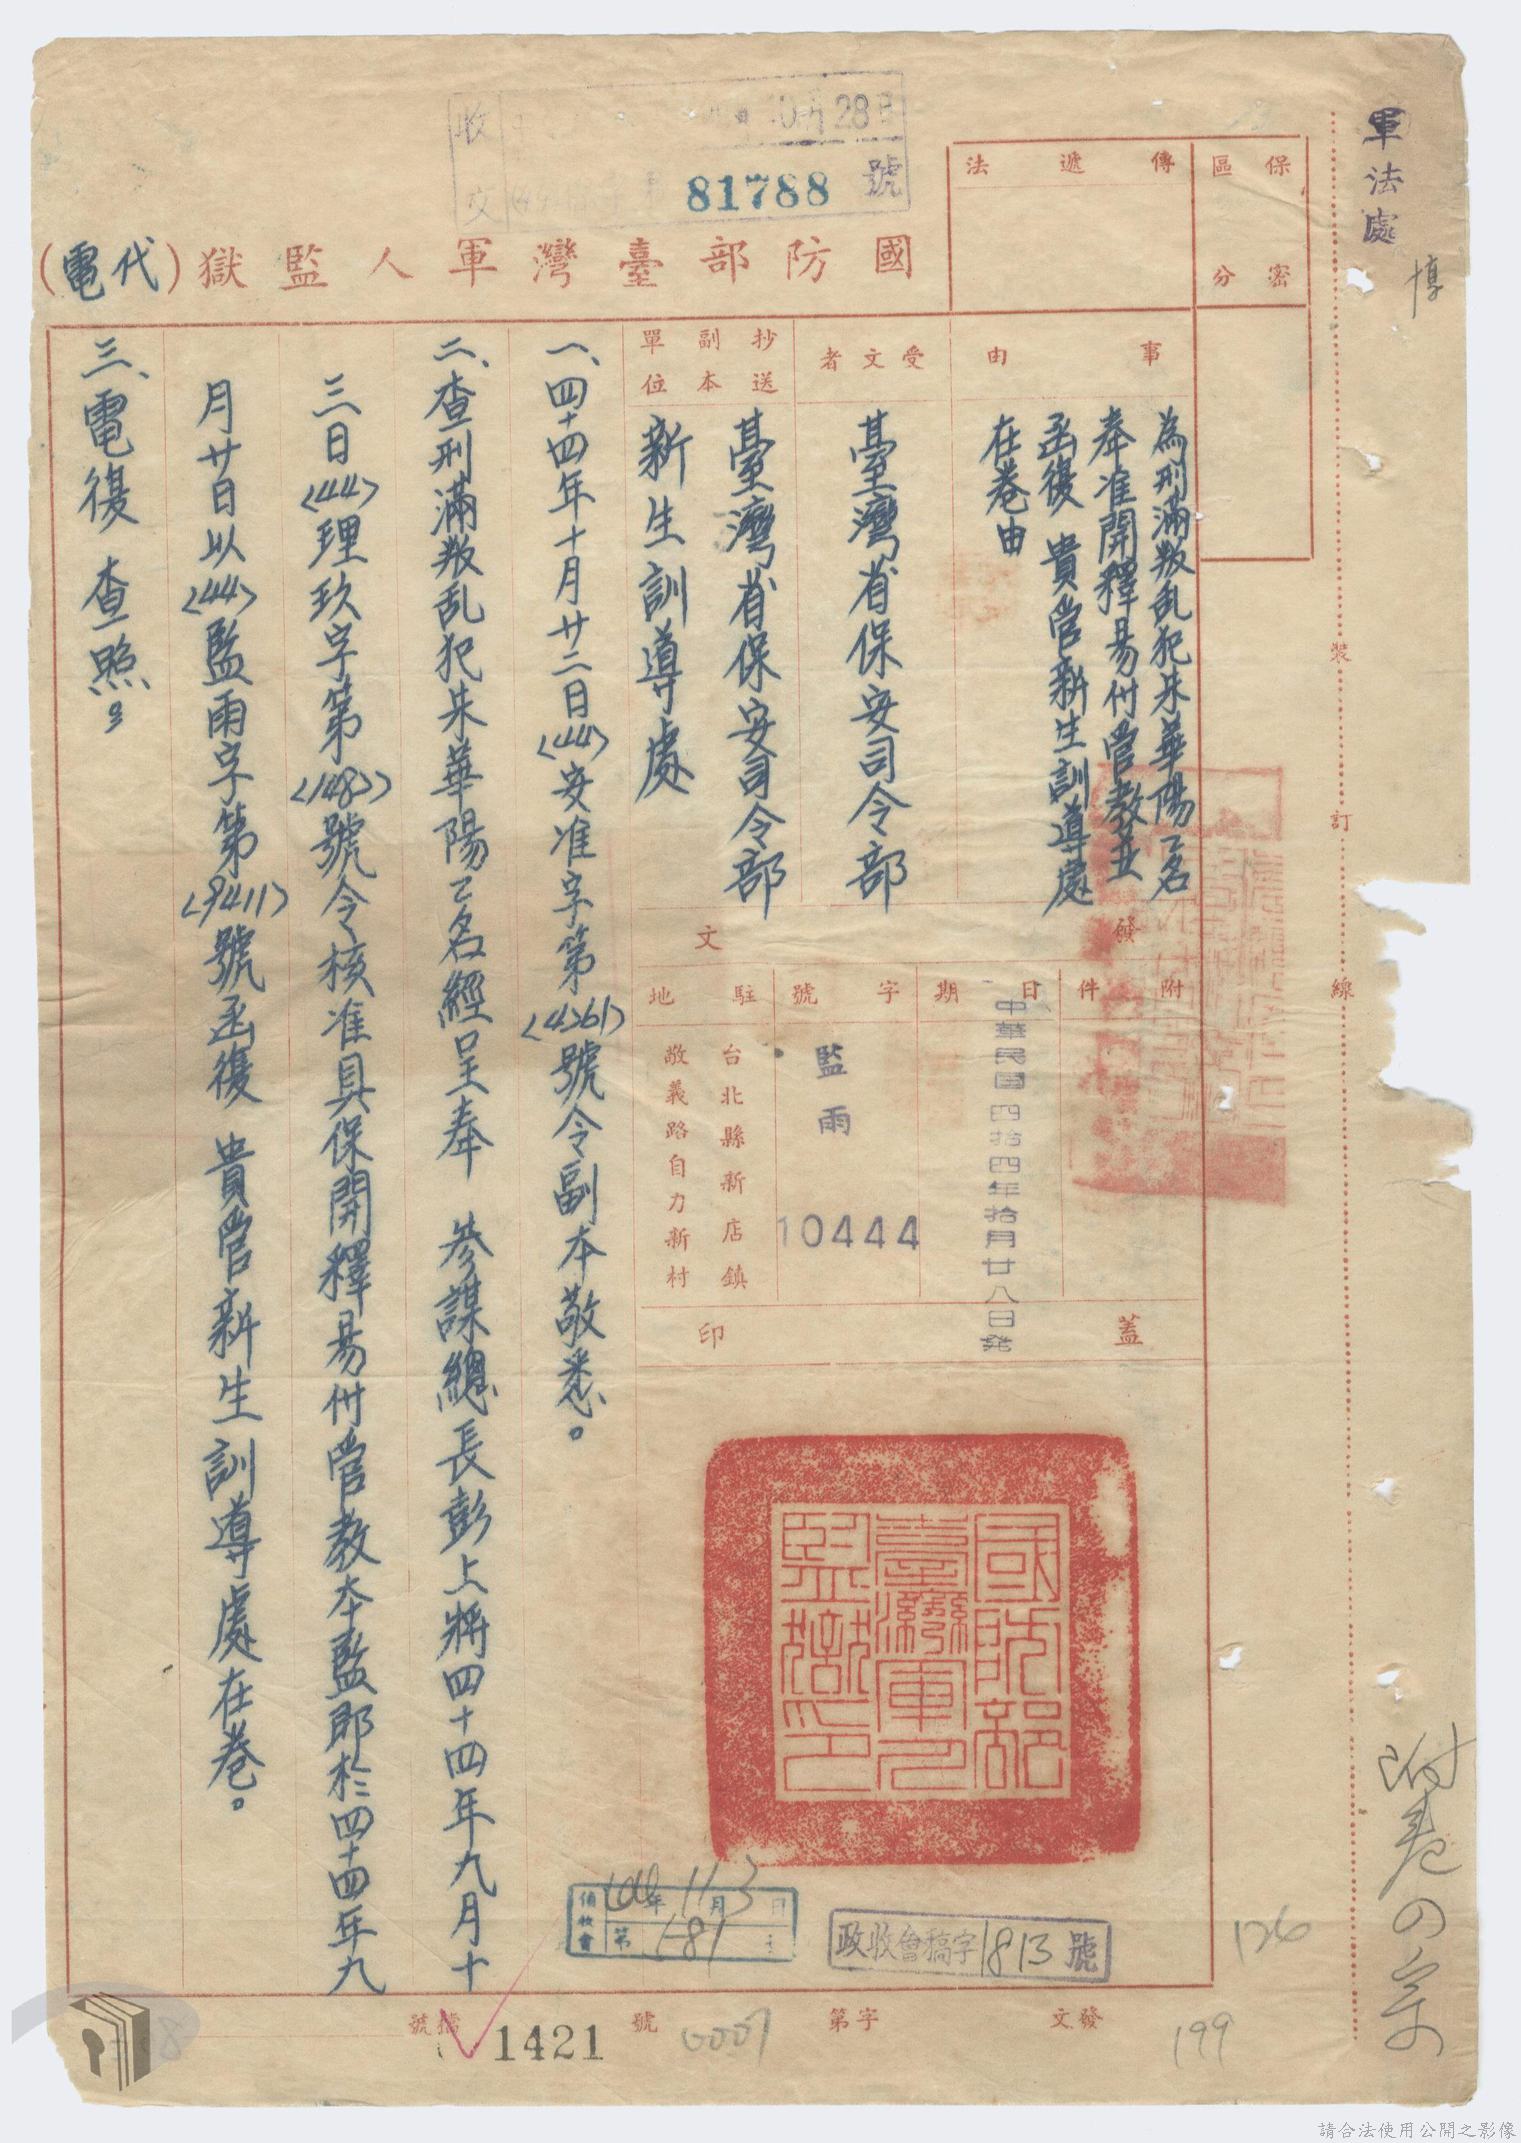 軍法處
裝訂線
保密區分
傳遞法
國防部臺灣軍人監獄(代電)
收文
10月28日
81788號
事由
為刑滿叛乱犯朱華陽乙名
奉准開釋易付管教並
函復 貴管新生訓導處
在卷由
受文者
臺灣省保安司令部
抄送副本單位
臺灣省保安司令部
新生訓導處
發文
附件
日期
中華民國四拾四年拾月廿八日発
字號
監雨
10444
駐地
台北縣新店鎮
敬義路自力新村
蓋印
國防部
臺灣軍人
監獄印
一、四十四年十月廿二日<44>安准字第<4261>號令副本敬悉。
二、查刑滿叛乱犯朱華陽乙名經呈奉 參謀總長彭上將四十四年九月十
三日<44>理玖字第<1482>號令核准具保開釋易付管教本監即於四十四年九
月廿日以<44>監雨字第<9411>號函復 貴管新生訓導處在卷。
三、電復 查照。
年11月3日
第181
政收會稿字1813號
126
發文 字第 0007 號
檔號 1421
199
請合法使用公開之影像